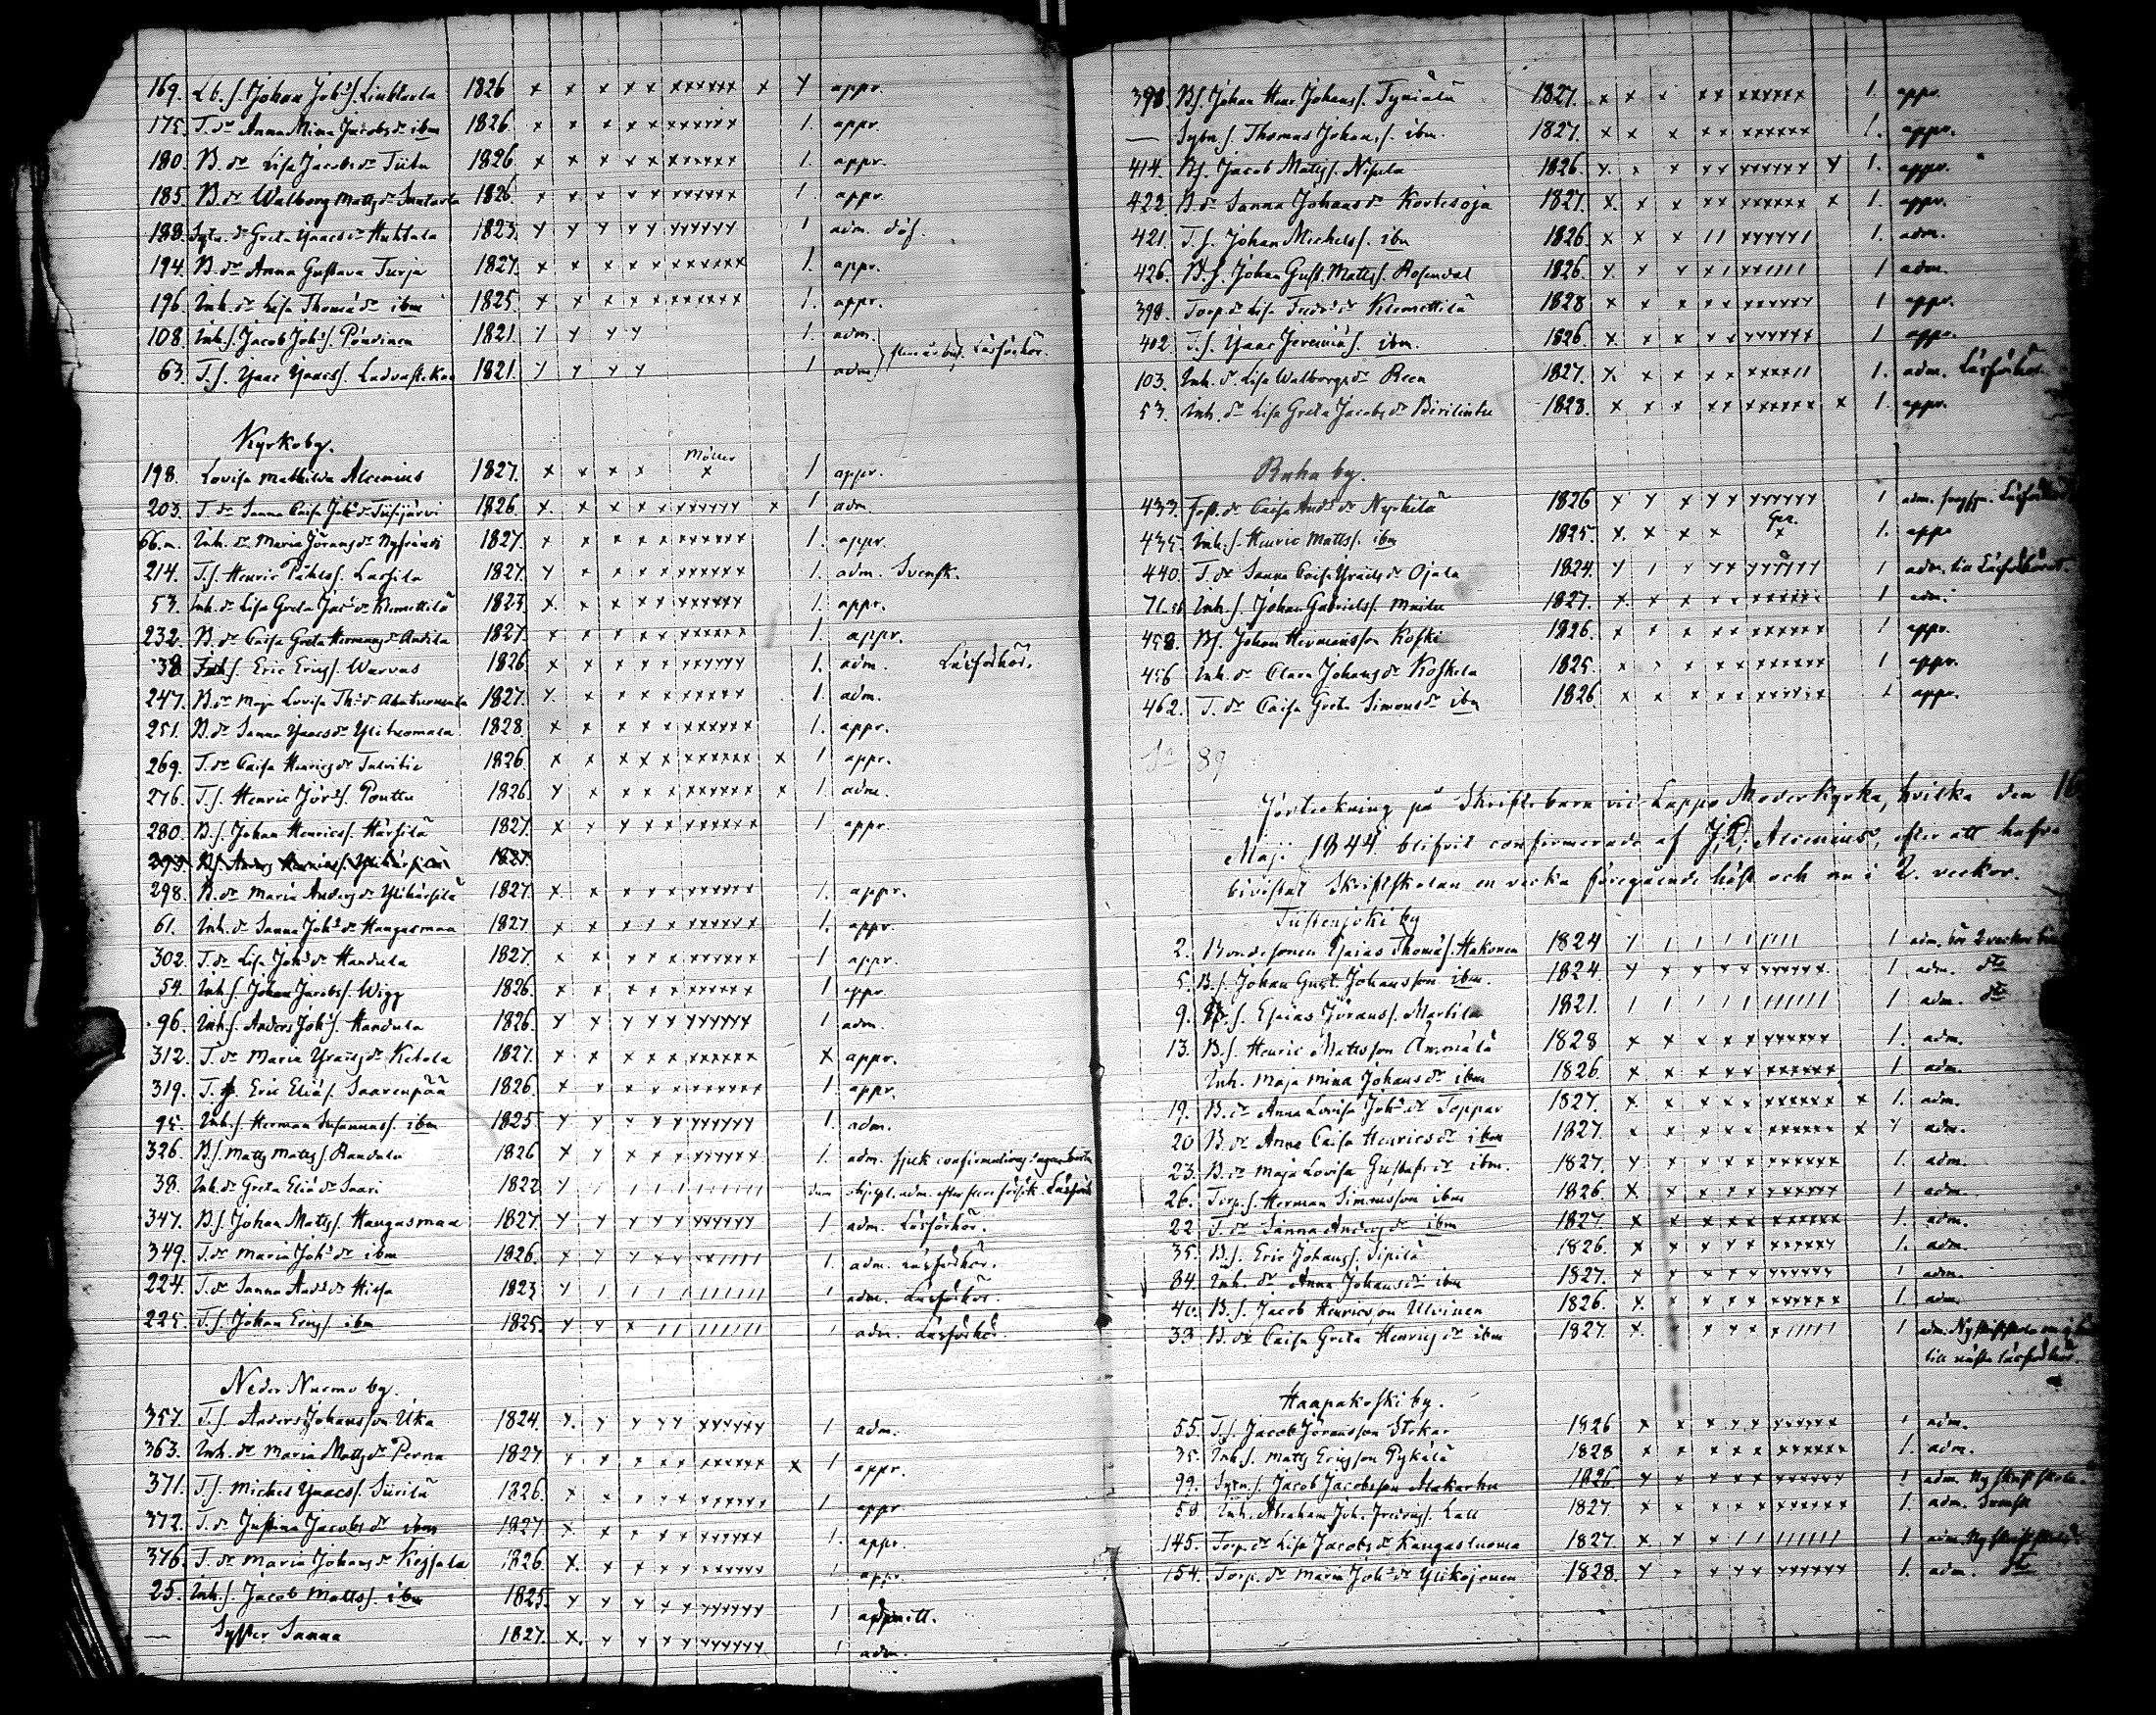 169. Lb. s. Johan Joh:s s. Liuhtari 1826 x x x x x xxxxxx x y appr.
175. T. dr Anna Mina Jacobs dr ibm 1826 x x x x x xxxxxx 1. appr.
180. B. dr Lisa Jacobs dr Tiitu 1826 x x x x x xxxxxx 1. appr.
185. B. dr Walborg Matts dr 1826 x x x x x xxxxxx 1. appr.
188. Sytn. dr Greta Isaacs dr Huhtala 1823 y y y y y yyyyyy 1 adm. döf.
194. B. dr Anna Gustava Turja 1827. x x x x x xxxxxx 1. appr.
196. Inh. dr Lisa Thomæ dr ibm 1825 x x x x x xxxxxx 1. appr.
108. Inh. s. Jacob Joh:s s. Pöndinen 1821. y y y y 1. adm.
63. T. s. Isaac Isaacs s. 1821. y y y y 1 adm Läsförhör.
Kyrkoby.
198. Lovisa Mathilda Alcenius 1827. x x x x Möller x 1 appr.
203. T. dr Sanna Caisa Joh:s dr Tiisijärvi 1826. x x x x x xxxxxx x 1 adm.
66. Inh. dr Maria Jörans dr 1827. x x x x x xxxxxx 1. appr.
214. T. s. Henric Påhls s. Lassila 1827. y x x x x xxxxxx 1. adm. Svensk.
53. Inh. dr Lisa Greta Jac. dr Klemettilä 1823. x x x x x xxxxxx 1. appr.
232. B. dr Caisa Greta Hermans dr Andila 1827. x x x x x xxxxxx 1. appr.
38 Inh. s. Eric Erics s. Warvas 1826 x x x x x xxyyyy 1. adm. Läsförhör.
247. B. dr Maja Lovisa Th. dr Alatuomela 1827. y x x x x xxxxxx 1. adm.
251. B. dr Sanna Isaacs dr Ylituomala 1828. x x x x x xxxxxx 1. appr.
269. T. dr Caisa Henrics dr Talvitie 1826 x x x x x xxxxxx x 1 appr.
276. T. s. Henric Jör:s s. Pouttu 1826. y x x x x xxxxxx x 1. adm.
280. B. s. Johan Henrics s. Härsilä 1827. x y y x x xxxxxx 1. appr.
1827.
298. B. dr Maria Anders dr Ylihärsilä 1827. x x x x x xxxxxx 1. appr.
61. Inh. dr Sanna Joh:s dr Hangasmaa 1827 x x x x x xxxxxx 1. appr.
302. T. dr Lis. Joh:s dr Handula 1827. x x x x x xxxxxx 1 appr.
54. Inh. s. Johan Jacobs s. Wigg 1826. x x x x x xxxxxx 1 appr.
96. Inh. s. Anders Joh:s s. Handula 1826. y y y y y yyyyyy 1 adm.
312. T. dr Maria dr Ketola 1827. x x x x x xxxxxx x appr.
319. T. s. Eric Eliæ s. Saarenpää 1826. x x x x x xxxxxx 1. appr.
95. Inh. s. Herman Susannas s. ibm 1825 y y y y y yyyyyy 1. adm.
326. B. s. Matts Matts s. Randala 1826 x y x x x xxxxxx 1. adm. sjuk
38. Inh. dr Greta Eliæ dr Saari 1822 y / / / / ////// adm. efter flere försök. Läsförh.
347. B. s. Johan Matts s. Hangasmaa 1827. y y y y y yyyyyy 1 adm. Läsförhör.
349. T. dr Maria Joh:s dr ibm 1826. x y y x x xx//// 1. adm. Läsförhör.
224. T. dr Sanna And:s dr Hissa 1823 y / / / / ////// 1 adm. Läsförhör.
225. T. s. Johan Erics s. ibm 1825. y y x / / ////// 1 adm. Läsförhör.
Neder Nurmo by.
357. T. s. Anders Johansson Uka 1824. y. y y y y yyyyyy 1 adm.
363. Inh. dr Maria Matts dr Perna 1827. y x x x x xxxxxx x 1 appr.
371. T. s. Michel Isaacs s. Siirilä 1826. x x x x x xxxxxx 1. appr
372. T. dr Justina Jacobs dr ibm 1827 x x x x x xxxxxx 1. appr.
376. T. dr Maria Johans dr Keisala 1826. x. x x x x xxxxxx 1 appr.
25. Inh. s. Jacob Matts s. ibm 1825. y y y y y yyyyyy 1 admitt.
— Syster Sanna 1827. x. y y y y yyyyyy 1 adm.
398. B. s. Johan Henr. Johans s. Tynialä 1827. x x x x x xxxxxx 1. appr.
— Sytn. s. Thomas Johans s. ibm. 1827. x x x x x xxxxxx 1. appr.
414. B. s. Jacob Matts s. Nisula 1826. y. x x y y yyyyyy y 1. appr.
422. B. dr Sanna Johans dr Kortesoja 1827. x. x x x x xxxxxx x 1. appr.
421. T. s. Johan Michels s. ibm 1826. x x x / / xyyyy/ 1. adm.
426. B. s. Johan Gust. Matts s. Rosendal 1826. y. y y x / xx//// 1 adm.
398. Torp. dr Lisa Fred:s dr Klemettilä 1828 x x x x x xxxxxx 1 appr.
402. T. s. Isaac Jeremiæ s. ibm. 1826. x x x x x xxxxxx 1 appr.
103. Inh. dr Lisa Walborgs dr Reen 1827. x. x x x x xxxx// 1. adm. Läsförhör.
53. Inh. dr Lisa Greta Jacobs dr 1828. x x x x x xxxxxx x 1. appr.
Ruha by.
433. Fost. dr Caisa And:s dr Nyrhilä 1826 y y x y y yyyyyy 1 adm. Läsförhör
435. Inh. s. Henric Matts s. ibm 1825. x. x x x Ger. x 1. appr
440. T. dr Sanna Caisa dr Ojala 1824. y / y y y yyyyyy 1 adm. till Läsförhöret.
71. Inh. s. Johan Gabriels s. 1827. x x x x x xxxxxx 1 adm.
458. B. s. Johan Hermansson Koski 1826. x x x x x xxxxxx 1 appr.
456 Inh. dr Clara Johans dr Koskela 1825. x x x x x xxxxxx 1 appr.
462. T. dr Caisa Greta Simons dr ibm 1826 x x x x x xxxxxx 1 appr.
S:a 89
Förteckning på Skriftebarn vid Lappo Moderkyrka, hvilka den 16
Maji 1844 blifvit confirmerade af J. R. Alcenius, efter att hafva
bivistat Skriftskolan en vecka föregående höst och nu i 2. veckor.
Tiistenjoki by
2. Bondesonen Esaias Thomæ s. Hakonen 1824 y / / / / //// 1 adm. bör 2 veckor
5. B. s. Johan Gust. Johansson ibm. 1824. y x x x x xxxxxx 1 adm. dto
9. s. Esaias Jörans s. Martila 1821. / / / / / ////// 1 adm. dto
13. B. s. Henric Mattsson Ämmälä 1828 x x x x x xxxxxx 1. adm.
Inh. Maja Mina Johans dr ibm 1826. x x x x x xxxxxx 1 adm.
19. B. dr Anna Lovisa Joh:s dr Teppar 1827. x. x x x x xxxxxx x 1. adm.
20 B. dr Anna Caisa Henrics dr ibm 1827. x x x x x xxxxxx x y adm.
23. B. dr Maja Lovisa Gustafs dr ibm. 1827. y x x x x xxxxxx 1. adm.
26. Torp. s. Herman Simonsson ibm 1826. x x x x x xxxxxx 1. adm.
22 T. dr Sanna Anders dr ibm 1827. x x x x x xxxxxx 1. adm.
35. B. s. Eric Johans s. Sipilä 1826. x x x x x xxxxxx 1. adm.
84. Inh. dr Anna Johans dr ibm 1827. x x x x x yyyyyy 1 adm.
40. B. s. Jacob Henricsson Ulvinen 1826. x. x x x x xxxxxx 1. adm.
33 B. dr Caisa Greta Henrics dr ibm 1827. x. x x x x x///// 1 adm. Ny skriftskola
till nästa läsförhör.
Haapakoski by.
55. T. s. Jacob Jöransson Stokar 1826 x x x x x xxxxxx 1 adm.
35. Inh. s. Matts Ericsson Pykälä 1828 x x x x x xxxxxx 1. adm.
99. Sytn. s. Jacob Jacobsson Alakarhu 1826. y y x x x xxyyyy 1 adm. Ny skriftskola.
58 Inh. Abraham Joh. s. Lall 1827. x x x x x xxxxxx 1. adm. Svensk
145. Torp. dr Lisa Jacobs dr Kangasluoma 1827. x x x / / ////// 1 adm. Ny skriftskola
154. Torp. dr Maria Joh:s dr Ylikojonen 1828. y x x y y xxxxxx 1. adm. dto